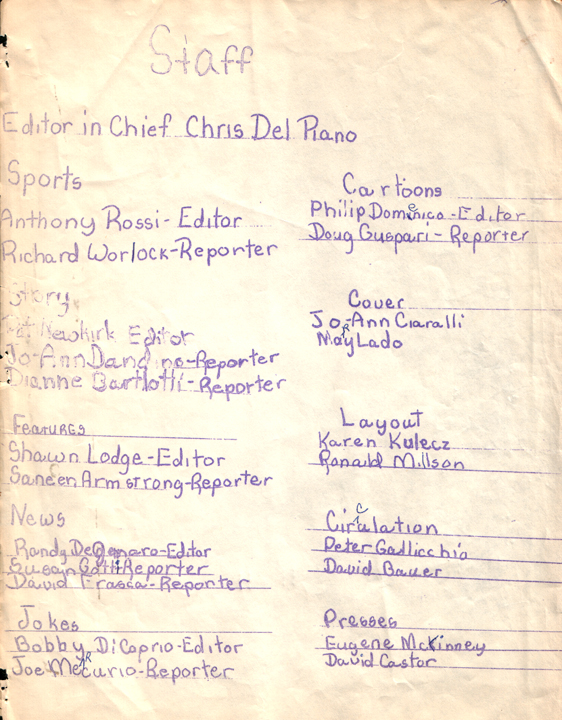 Staff
Editor in Chief Chris Del Piano
Sports
Anthony Rossi - Editor
Richard Worlock-Reporter
Story
Pat Newkirk Editor
Jo-Ann Dandino-Reporter
Dianne Bartlotti-Reporter
Features
Shawn Lodge-Editor
Saneen Armstrong-Reporter
News
Randy DeGenaro-Editor
Susan Gatti Reporter
David Frasca-Reporter
Jokes
Bobby DiCaprio-Editor
Joe Mercurio-Reporter
Cartoons
Philip Domenico-Editor
Doug Guspari-Reporter
Cover
Jo-Ann Ciaralli
Mary Lado
Layout
Karen Kulecz
Ronald Millson
Circulation
Peter Gallicchio
David Bauer
Presses
Eugene McKinney
David Castor